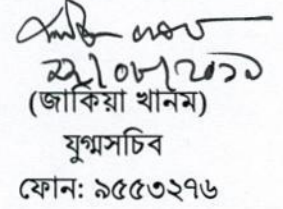 ২২/০৮/২০১৯
(জাকিয়া খানম)
যুগ্মসচিব
ফোন: ৯৫৫৩২৭৬